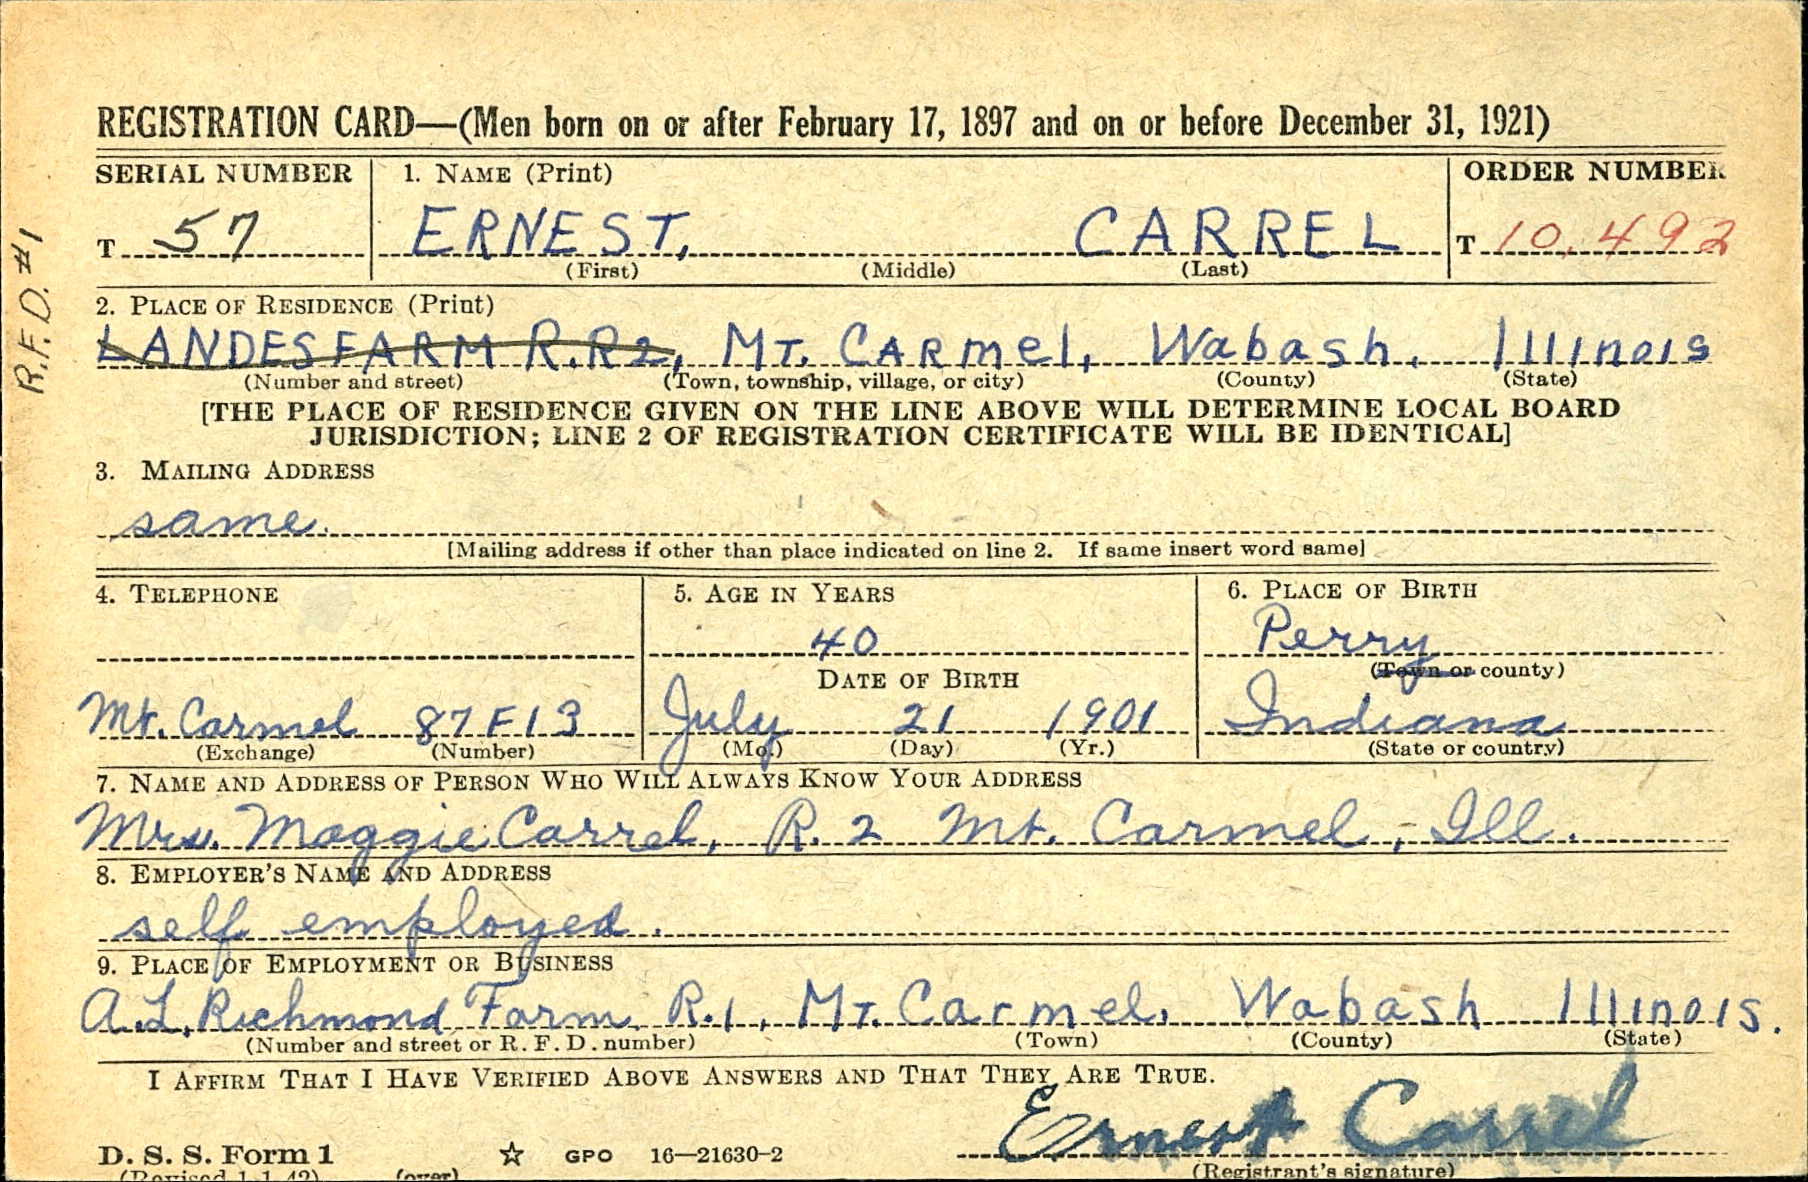 REGISTRATION CARD—(Men born on or after February 17, 1897 and on or before December 31, 1921)
SERIAL NUMBER 1. NAME (Print) ORDER NUMBER
T 57 ERNEST, CARREL T 10,492
(First) (Middle) (Last)
R.F.D. #1
2. PLACE OF RESIDENCE (Print)
LANDES FARM R.R 2, MT. CARMEL, Wabash, Illinois
(Number and street) (Town, township, village, or city) (County) (State)
[THE PLACE OF RESIDENCE GIVEN ON THE LINE ABOVE WILL DETERMINE LOCAL BOARD
JURISDICTION; LINE 2 OF REGISTRATION CERTIFICATE WILL BE IDENTICAL]
3. MAILING ADDRESS
same.
[Mailing address if other than place indicated on line 2. If same insert word same]
4. TELEPHONE 5. AGE IN YEARS 6. PLACE OF BIRTH
40 Perry
(Town or county)
DATE OF BIRTH
Mt. Carmel 87F13 July 21 1901 Indiana
(Exchange) (Number) (Mo.) (Day) (Yr.) (State or country)
7. NAME AND ADDRESS OF PERSON WHO WILL ALWAYS KNOW YOUR ADDRESS
Mrs. Maggie Carrel, R. 2 Mt. Carmel, Ill.
8. EMPLOYER'S NAME AND ADDRESS
self employed.
9. PLACE OF EMPLOYMENT OR BUSINESS
A.L. Richmond Farm R.1, MT. Carmel, Wabash Illinois.
(Number and street or R. F. D. number) (Town) (County) (State)
I AFFIRM THAT I HAVE VERIFIED ABOVE ANSWERS AND THAT THEY ARE TRUE.
Ernest Carrel
D. S. S. Form 1 ☆ GPO 16—21630-2
(Revised 1-1-42) (over) (Registrant's signature)